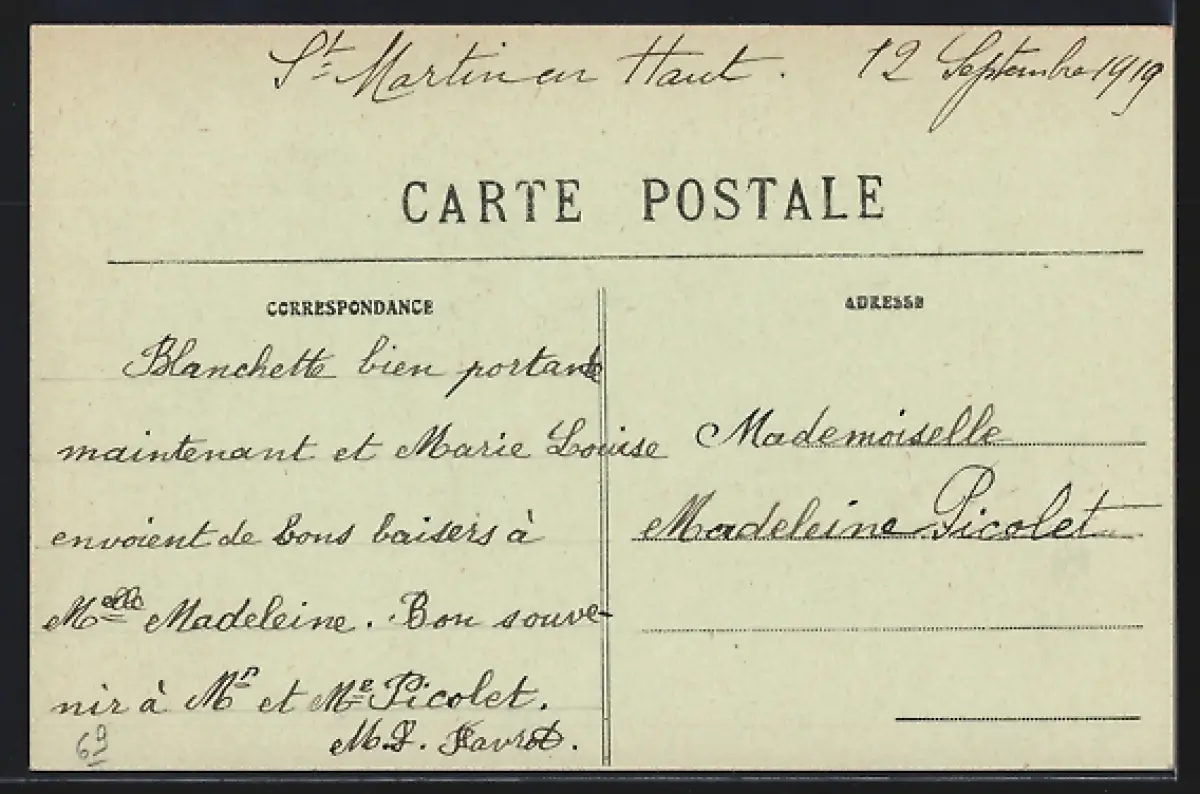 St Martin en Haut. 12 Septembre 1919
CARTE POSTALE
CORRESPONDANCE
Blanchette bien portante
maintenant et Marie Louise
envoient de bons baisers à
Melle Madeleine. Bon souve-
nir à Mr et Me Picolet.
M.L. Favrot.
69
ADRESSE
Mademoiselle
Madeleine Picolet